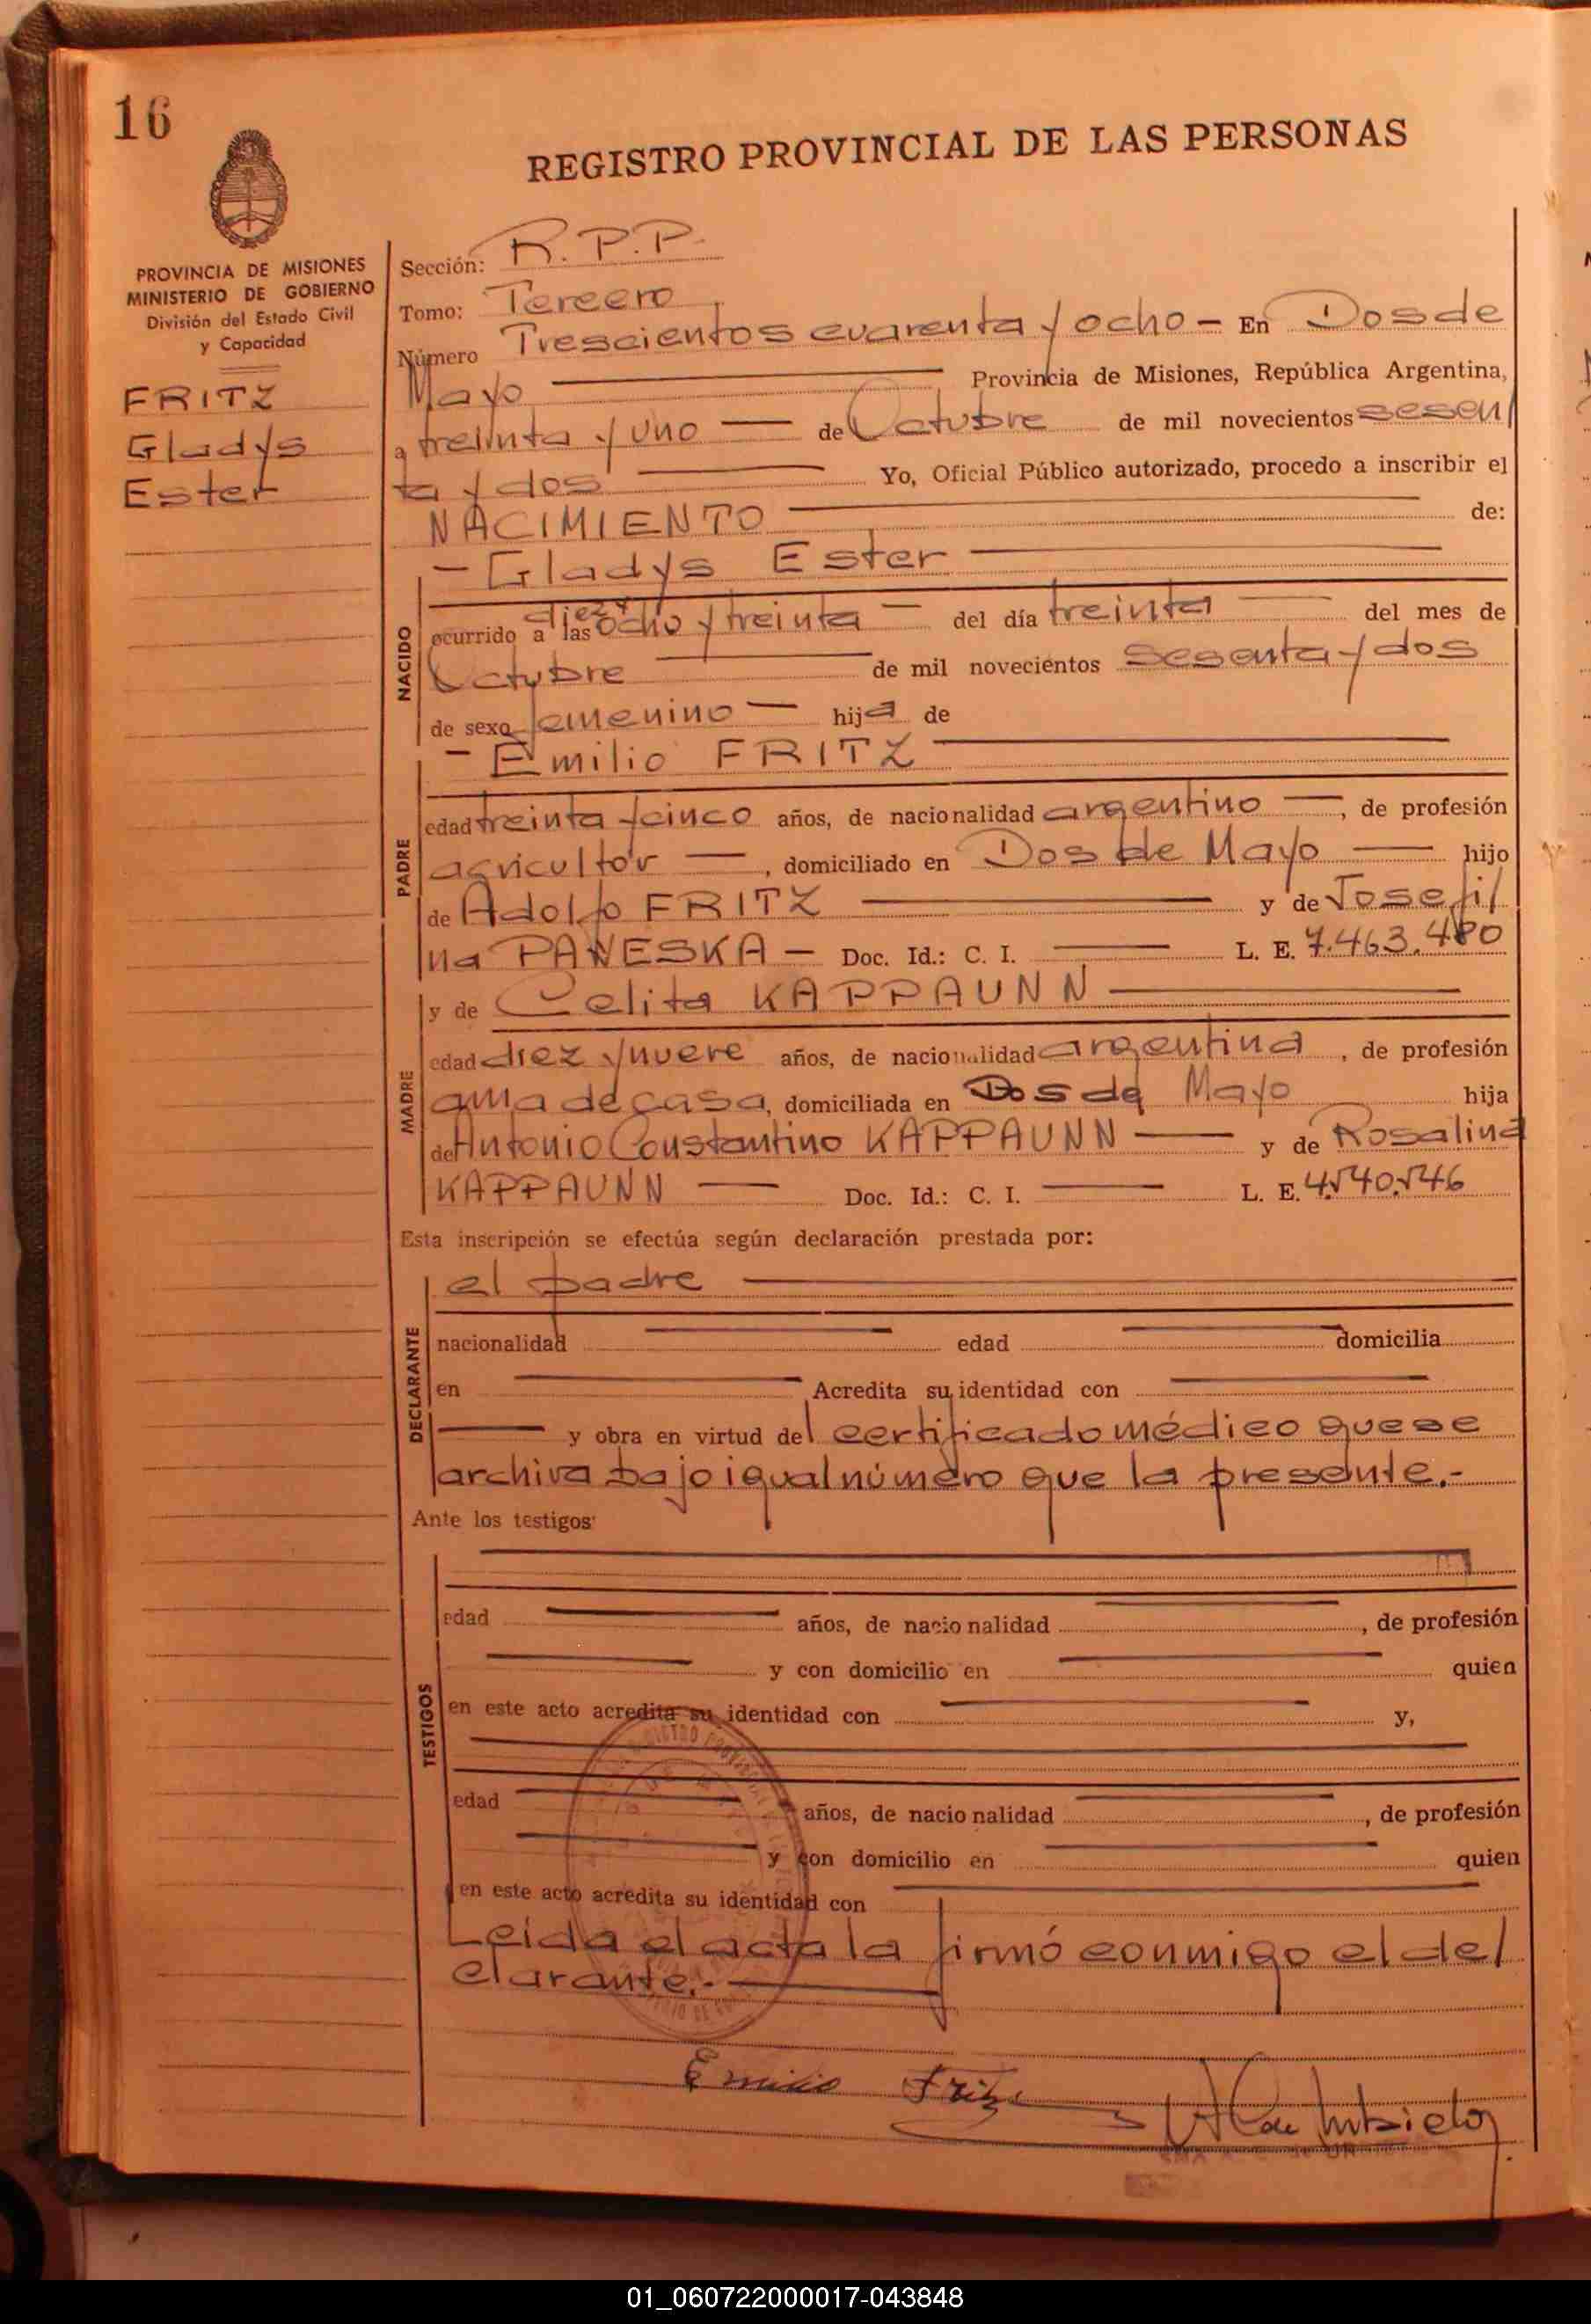 16
REGISTRO PROVINCIAL DE LAS PERSONAS
PROVINCIA DE MISIONES
MINISTERIO DE GOBIERNO
División del Estado Civil
y Capacidad
FRITZ
Gladys
Ester
Sección: R.P.P.
Tomo: Tercero
Número Trescientos cuarenta y ocho - En Dos de
Mayo Provincia de Misiones, República Argentina,
a treinta y uno de Octubre de mil novecientos sesen
ta y dos Yo, Oficial Público autorizado, procedo a inscribir el
NACIMIENTO de:
- Gladys Ester
NACIDO
diez y
ocurrido a las ocho y treinta del día treinta del mes de
Octubre de mil novecientos sesenta y dos
de sexo femenino hija de
- Emilio FRITZ
PADRE
edad treinta y cinco años, de nacionalidad argentino, de profesión
agricultor, domiciliado en Dos de Mayo hijo
de Adolfo FRITZ y de Josefi
na PANESKA - Doc. Id.: C. I. L. E. 7.463.480
y de Celita KAPPAUNN
MADRE
edad diez y nueve años, de nacionalidad argentina, de profesión
ama de casa, domiciliada en Dos de Mayo hija
de Antonio Constantino KAPPAUNN y de Rosalina
KAPPAUNN Doc. Id.: C. I. L. E. 4.540.546
Esta inscripción se efectúa según declaración prestada por:
el padre
DECLARANTE
nacionalidad edad domicilia
en Acredita su identidad con
y obra en virtud del certificado médico que se
archiva bajo igual número que la presente.-
Ante los testigos:
TESTIGOS
edad años, de nacionalidad, de profesión
y con domicilio en quien
en este acto acredita su identidad con y,
edad años, de nacionalidad, de profesión
y con domicilio en quien
en este acto acredita su identidad con
Leida el acta la firmó conmigo el de
clarante.-
Emilio Fritz
01_060722000017-043848